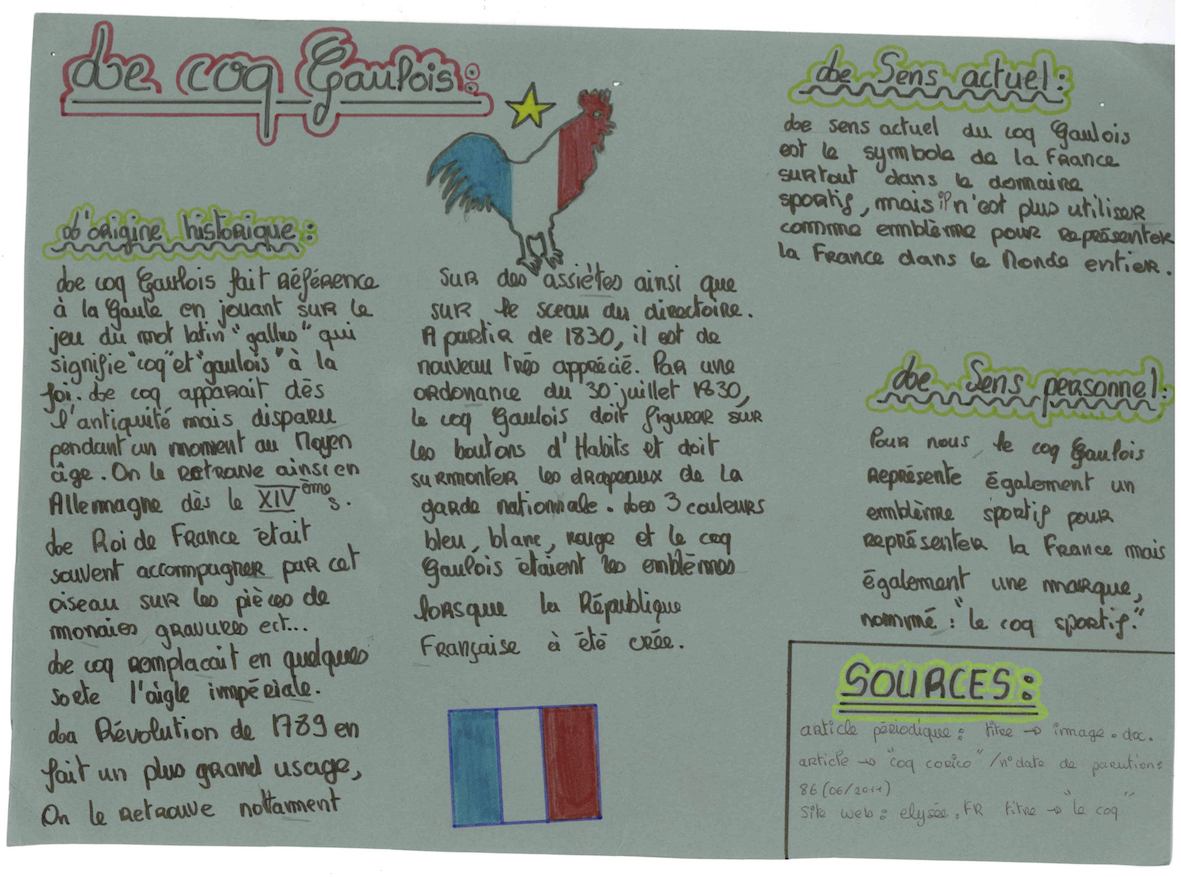 Le coq Gaulois:
L'origine historique:
Le coq Gaulois fait référence
à la Gaule en jouant sur le
jeu du mot latin "gallus" qui
signifie "coq" et "gaulois" à la
foi. Le coq apparait dès
l'antiquité mais disparu
pendant un moment au Moyen
âge. On le retrouve ainsi en
Allemagne dès le XIVème s.
Le Roi de France était
souvent accompagner par cet
oiseau sur les pièces de
monaies gravures ect...
Le coq remplacait en quelques
sorte l'aigle impériale.
La Révolution de 1789 en
fait un plus grand usage,
On le retrouve nottamment
sur des assiètes ainsi que
sur le sceau du directoire.
A partir de 1830, il est de
nouveau très apprécié. Par une
ordonance du 30 juillet 1830,
le coq Gaulois doit figurer sur
les boutons d'Habits et doit
surmonter les drapeaux de la
garde nationnale. Les 3 couleurs
bleu, blanc, rouge et le coq
Gaulois étaient les emblèmes
lorsque la République
Française à été crée.
Le Sens actuel:
Le sens actuel du coq Gaulois
est le symbole de la France
surtout dans le domaine
sportif, mais il n'est plus utiliser
comme emblème pour représenter
la France dans le Monde entier.
Le Sens personnel:
Pour nous, le coq Gaulois
représente également un
emblème sportif pour
représenter la France mais
également une marque,
nommé: "le coq sportif."
SOURCES:
article périodique: titre → image. doc.
article → "coq corico" / n° date de parutions
86 (06/2011)
Site web: elysée.FR titre → "le coq"